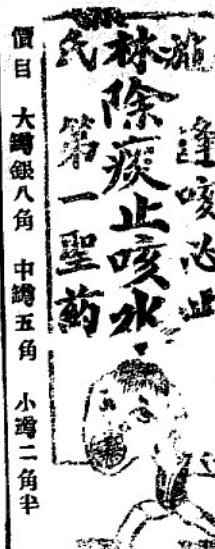 林氏
逢咳必止
除痰止咳水
第一聖药
價目 大罇銀八角 中罇五角 小罇二角半